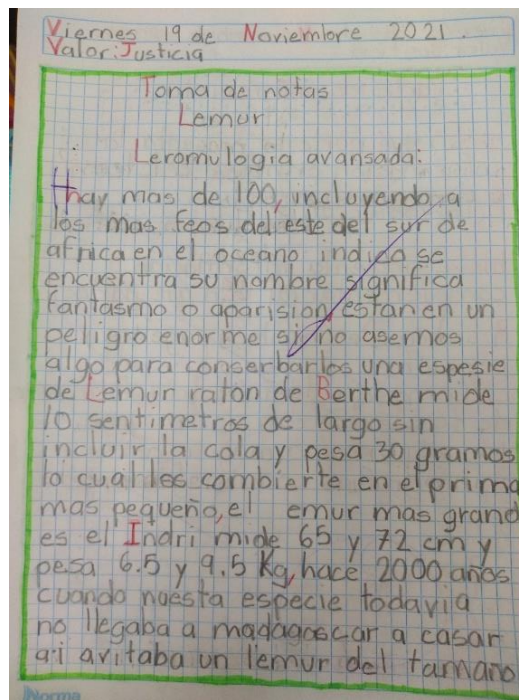 Viernes 19 de Noviembre 2021.
Valor: Justicia
Toma de notas
Lemur
Leromulogia avansada:
Hay mas de 100, incluyendo a
los mas feos del este del sur de
africa en el oceano indico se
encuentra su nombre significa
fantasmo o aparision, estan en un
peligro enorme si no asemos
algo para conserbarlos una espesie
de Lemur raton de Berthe mide
10 sentimetros de largo sin
incluir la cola y pesa 30 gramos
lo cual les combierte en el prima
mas pequeño, el emur mas grand
es el Indri mide 65 y 72 cm y
pesa 6.5 y 9.5 Kg, hace 2000 años
cuando nuesta especie todavia
no llegaba a madagascar a casar
ai avitaba un lemur del tamaño
Norma